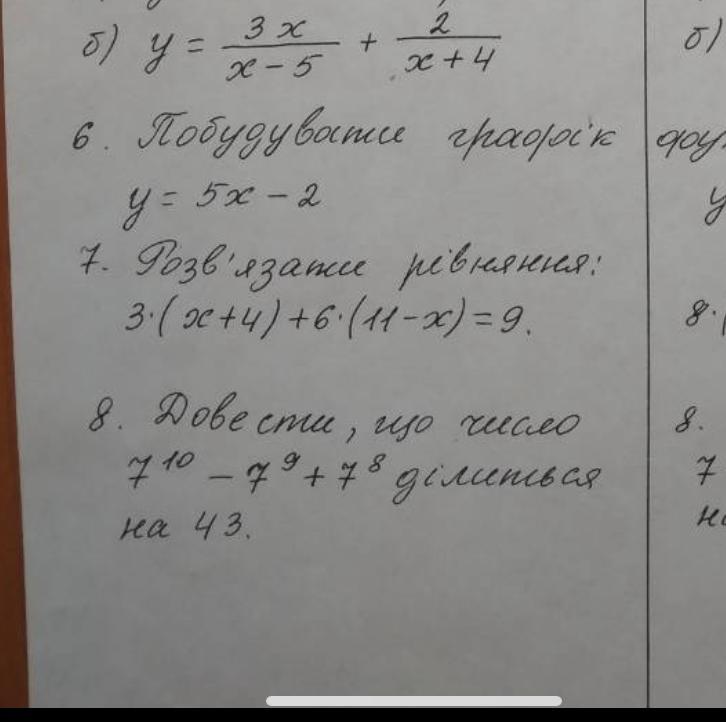 б) y = 3x/(x-5) + 2/(x+4)
б)
6. Побудувати графік
y = 5x - 2
y
7. Розв'язати рівняння:
3·(x+4)+6·(11-x)=9.
8·(
8. Довести, що число
8.
7¹⁰ - 7⁹ + 7⁸ ділиться
7
на 43.